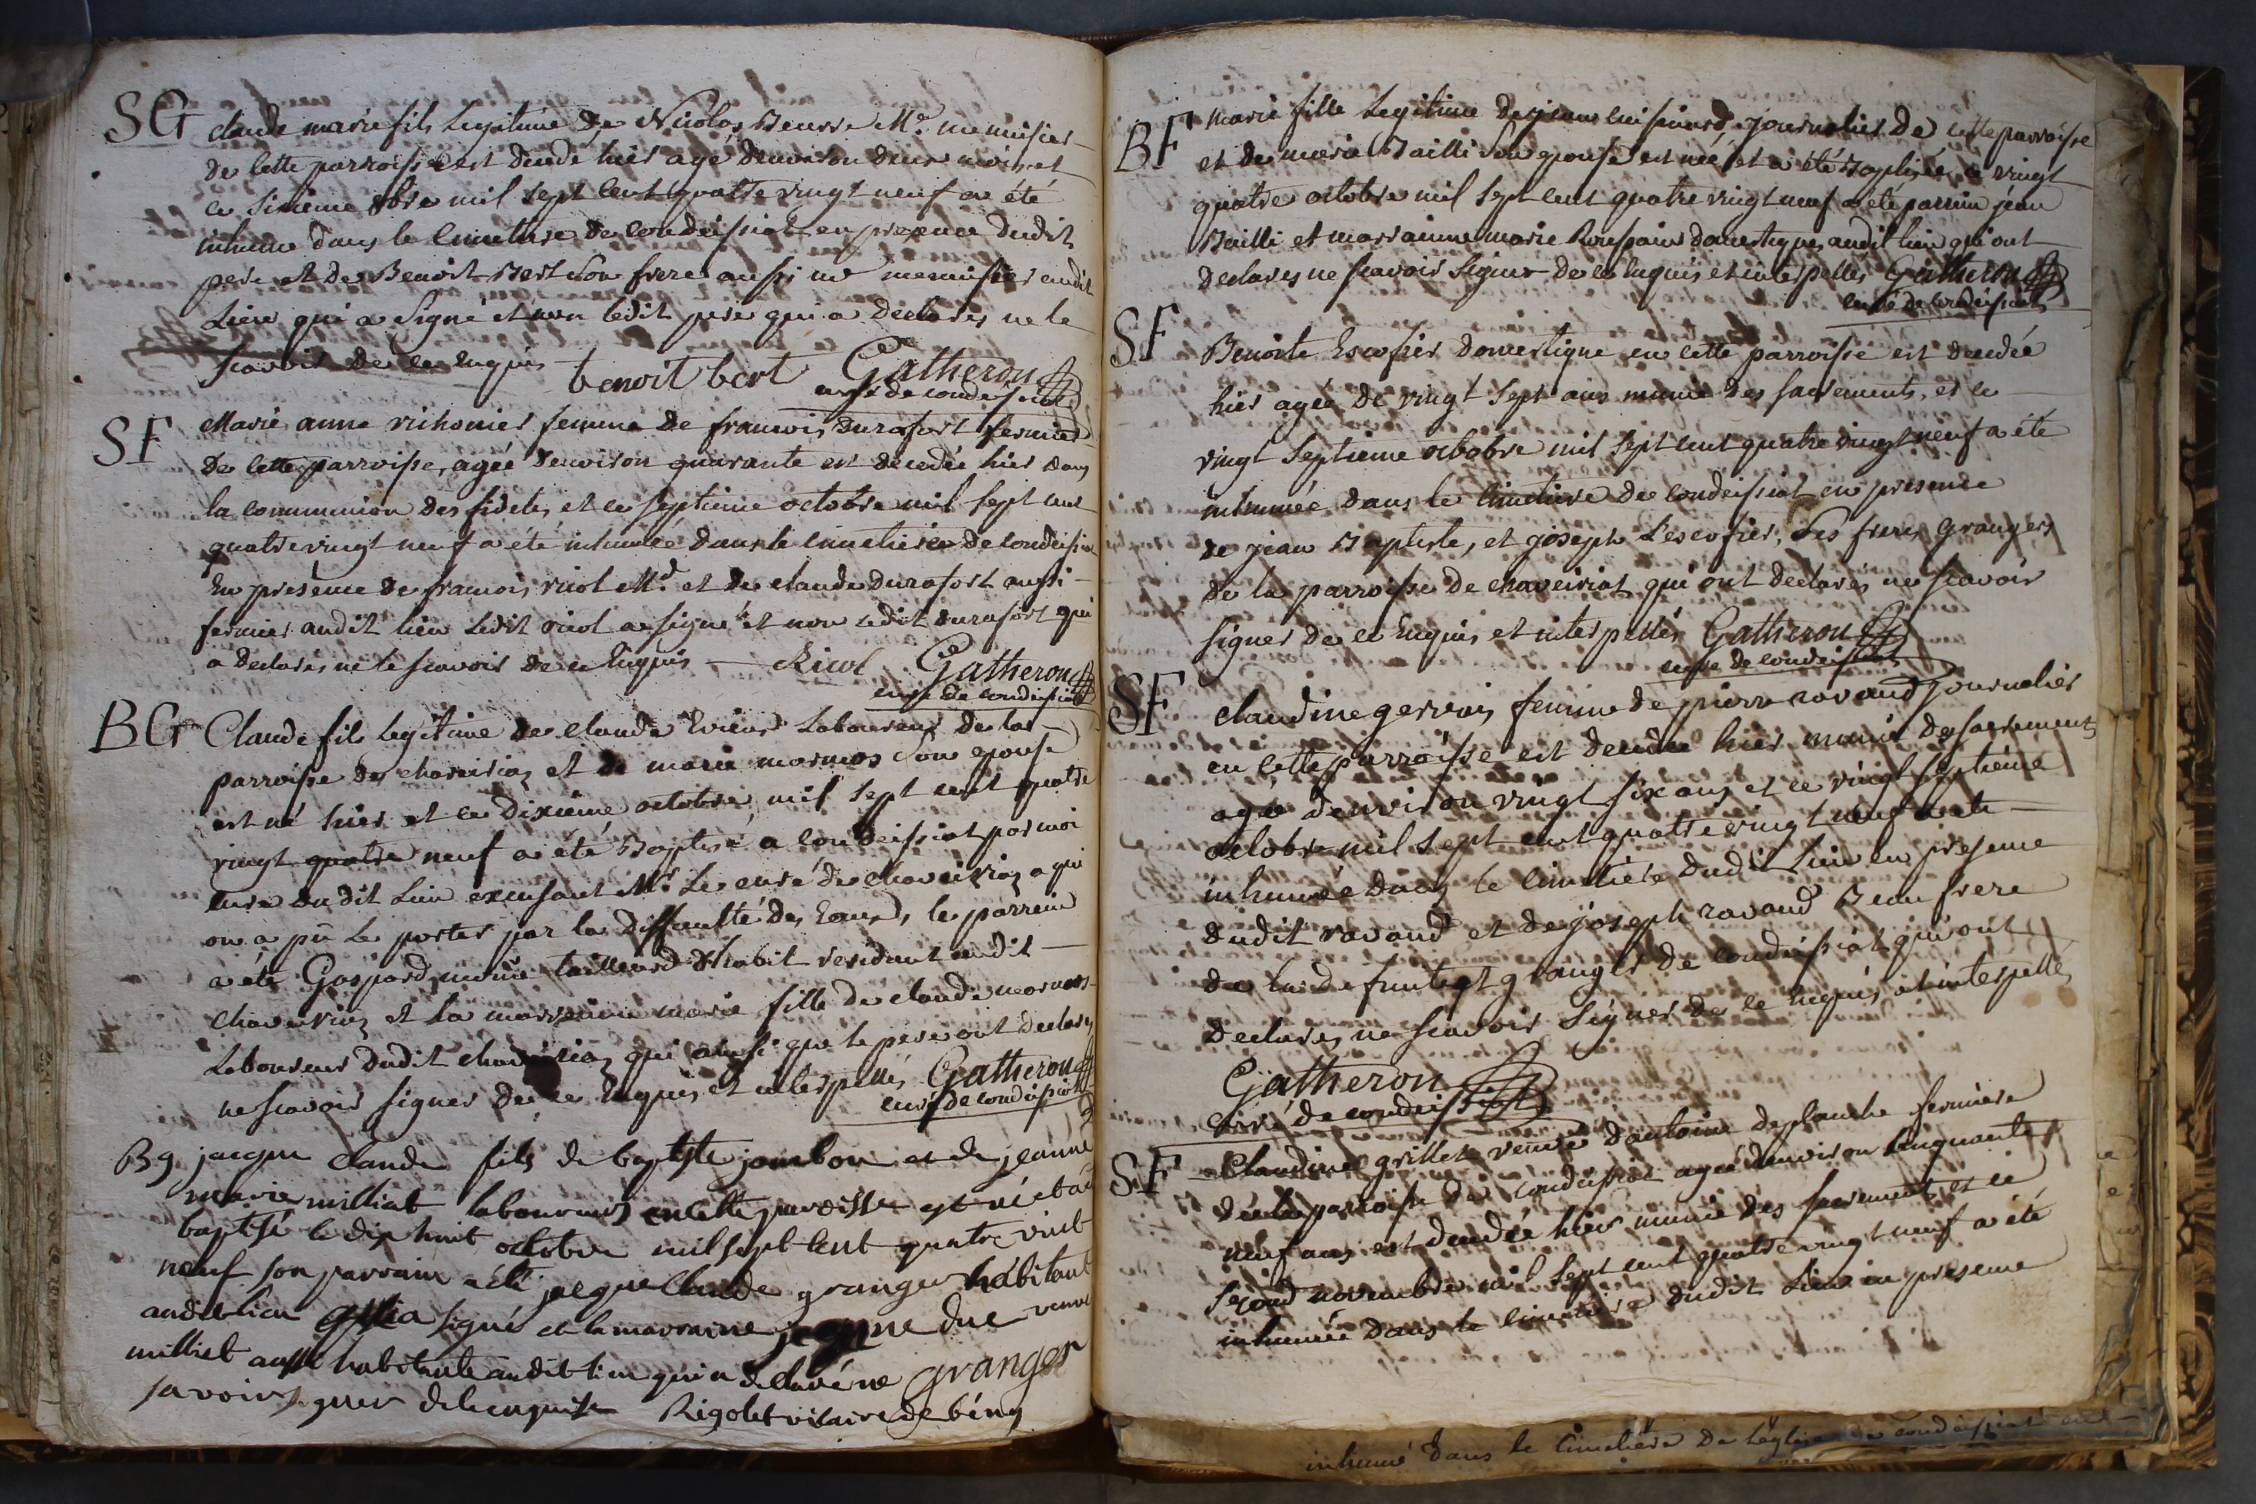 SG claude marie fils legitime de Nicolas Beurre Md. menuisier
de cette parroisse est decedé hier agé denviron deux mois et
ce sixieme 8bre mil sept cent quatre vingt neuf a été
inhumé dans le cimetiere de condeissiat en presence dudit
pere et de Benoit Bert son frere aussi md menuisier audit
Lieu qui a signé et non ledit pere qui a declarés ne le
scavoir de ce enquis benoit bert Gatheron
curé de condeissiat
SF Marie anne femme de francois durafort fermier
de cette parroisse, agée denviron quarante est decedée hier dans
la communion des fideles et ce septieme octobre mil sept cent
quatre vingt neuf a été inhumée dans le cimetiere de condeissiat
En presence de francois ricol Md. et de claude durafort aussi
fermier audit lieu ledit ricol a signé et non ledit durafort qui
a declarés ne le scavoir de ce Enquis — Ricol Gatheron
curé de condeissiat
BG Claude fils legitime de claude Laboureur de la
parroisse de chaveiriaz et de marie marmos son epouse
est né hier et ce dixieme octobre mil sept cent quatre
vingt quatre neuf a été Baptisé a condeissiat par moi
curé dudit Lieu excusant Mr Le curé de chaveiriaz a qui
on a pû Le porter par la diffiulté des Eaux, le parrein
a été Gaspard tailleurd d'habit residant audit
chaveiriaz et la marraine marie fille de claude marmos
Laboureur dudit chaveiriaz qui ainsi que le pere ont declarés
ne scavoir signer de ce enquis et interpellés Gatheron
curé de condeissiat
Bg jacque claude fils de baptiste jambon et de jeanne
marie milliat laboureurs en cette paroisse est né et a été
baptisé le dix huit octobre mil sept cent quatre vint
neuf son parrain a été jacque claude granger habitant
audit lieu qui a signé et la marraine jeanne duc veuve
milliet aussi habitante audit lieu qui a declaré ne granger
savoir signer de ce enquise Rigolet vicaire de bény
BF Marie fille legitime de jean journalier de cette parroisse
et de marie Bailli son epouse est née et a été Baptisée ce vingt
quatre octobre mil sept cent quatre vingt neuf a été parrein jean
Bailli et marrainne marie domestiques audit lieu qui ont
declarés ne scavoir signer de ce Enquis et interpellés Gatheron
curé de condeissiat
SF Benoite Escofier domestique en cette parroisse est decedée
hier agée de vingt sept ans munie des sacrements, et ce
vingt septieme octobre mil sept cent quatre vingt neuf a été
inhumée dans le cimetiere de condeissiat en presence
de jean Baptiste, et joseph L'escofier, ses freres grangers
de la parroisse de chaveiriat qui ont declarés ne scavoir
signer de ce Enquis et interpellés Gatheron
curé de condeissiat
SF claudine gervais femme de pierre ravaud Journalier
en cette parroisse est decedée hier munie des sacrements
agée denviron vingt six ans et ce vingt septieme
octobre mil sept cent quatre vingt neuf a été
inhumée dans le cimetiére dudit Lieu en presence
dudit ravaud et de joseph ravaud Beau frere
de la defunte et granger de condeissiat qui ont
declarés ne scavoir signer de ce Enquis et interpellés
Gatheron
curé de condeissiat
SF Claudine grillet veuve d'antoine deplanche fermiére
de la parroisse de condeissiat agée denviron cinquante
neuf ans est decedée hier munie des sacrements et ce
second novembre mil sept cent quatre vingt neuf a été
inhumée dans le cimetiere dudit Lieu en presence
inhumé dans le Cimetiere de L'eglise de condeissiat